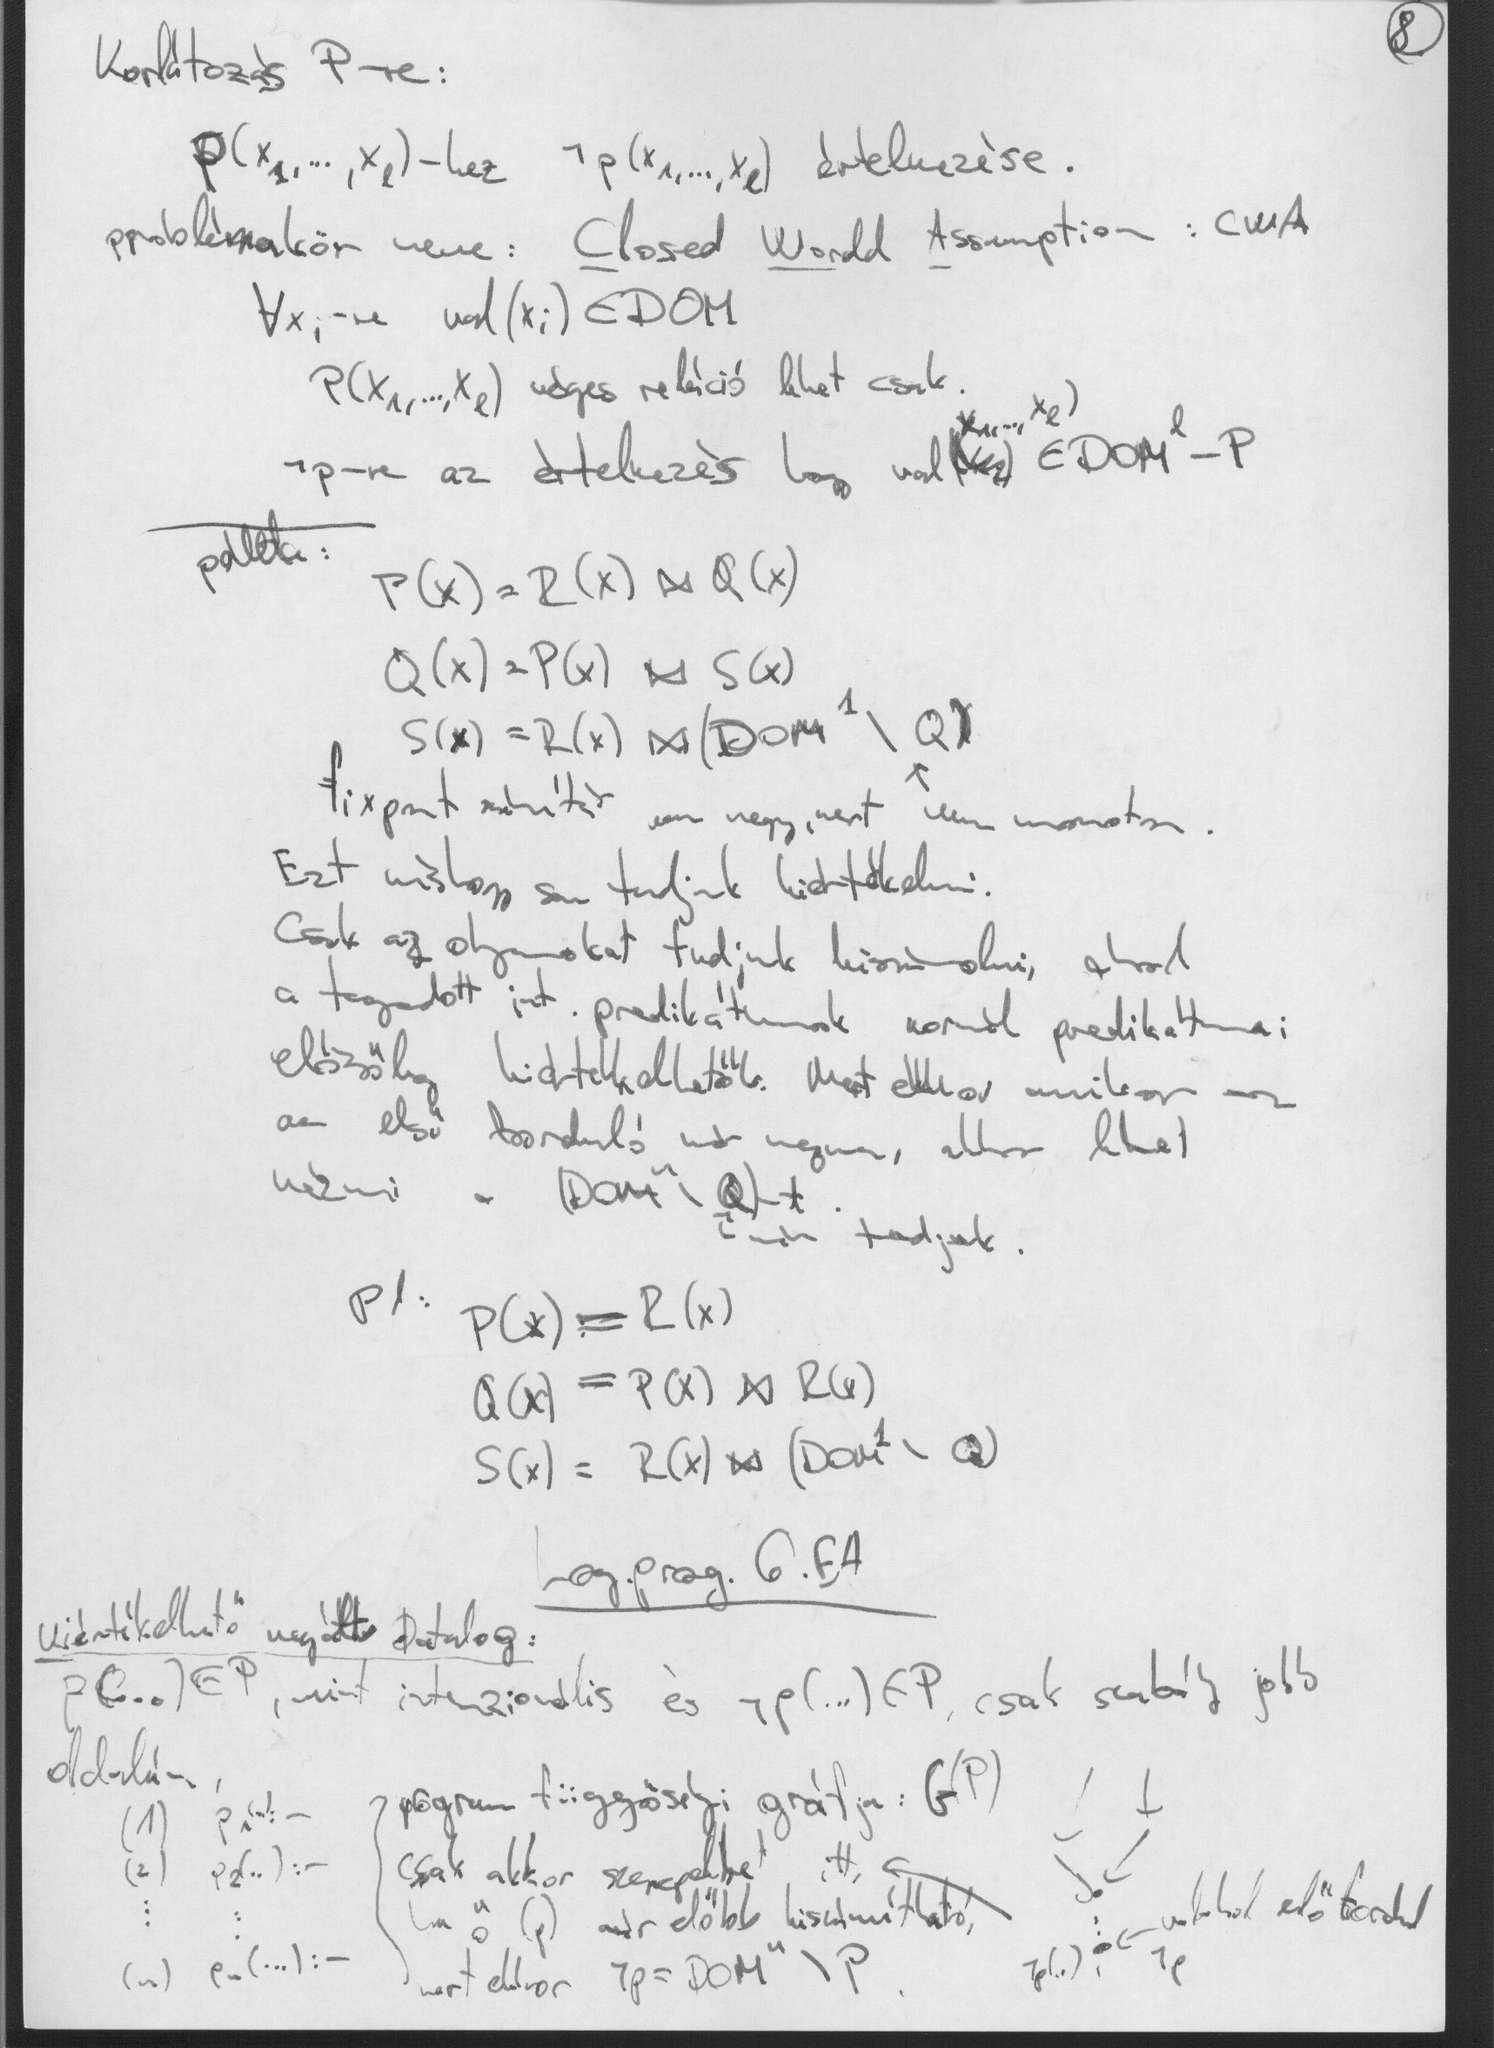 8
Korlátozás P-re:
p(x₁,...,xₗ)-hez ¬p(x₁,...,xₗ) értelmezése.
problémakör neve: Closed World Assumption : CWA
∀xᵢ-re val(xᵢ) ∈ DOM
P(x₁,...,xₗ) véges reláció lehet csak.
¬p-re az értelmezés hogy val(x₁,...,xₗ) ∈ DOMˡ - P
példa:
P(x) = R(x) ⋈ Q(x)
Q(x) = P(x) ⋈ S(x)
S(x) = R(x) ⋈ (DOM¹ \ Q)
fixpont számítás nem megy, mert ↑ nem monoton.
Ezt máshogy sem tudjuk kiértékelni.
Csak az olyanokat tudjuk kiszámolni, ahol
a tagadott int. predikátumok normál predikátumai
előzőleg kiértékelhetők. Mert ekkor amikor
az első forduló már megvan, akkor lehet
nézni a (DOMⁿ \ Q)-t.
↑ már tudjuk.
Pl:
P(x) = R(x)
Q(x) = P(x) ⋈ R(x)
S(x) = R(x) ⋈ (DOM¹ \ Q)
Log.prog. 6.EA
Kiértékelhető negált Datalog:
p(...) ∈ P, mint intenzionális és ¬p(...) ∈ P, csak szabály jobb
oldalán,
(1) p₁(..):- program függőségi gráfja: G(P)
(2) p₂(..):- csak akkor szerepelhet itt,
⋮ ⋮ ha ő (p) már előbb kiszámítható,
(n) pₙ(...):- mert ekkor ¬p = DOMⁿ \ P.
¬p(..) valahol előfordul
¬p